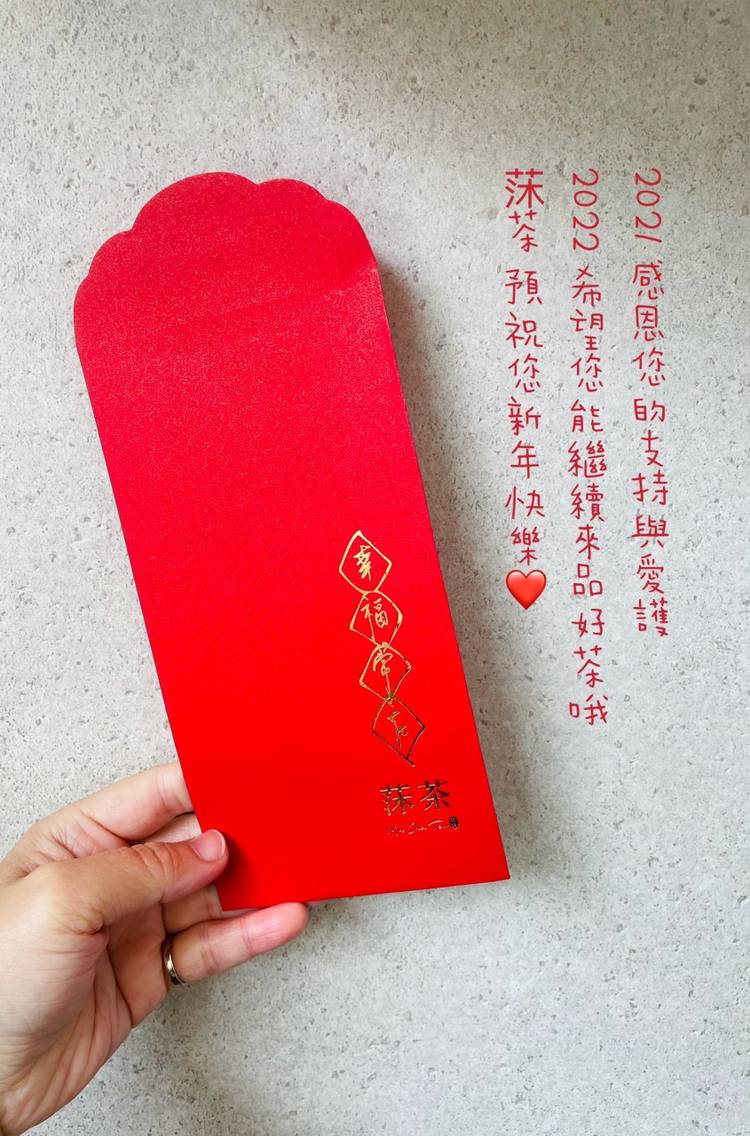 2021 感恩您的支持與愛護
2022 希望您能繼續來品好茶哦
莯茶 預祝您新年快樂❤️
幸福常在
莯茶